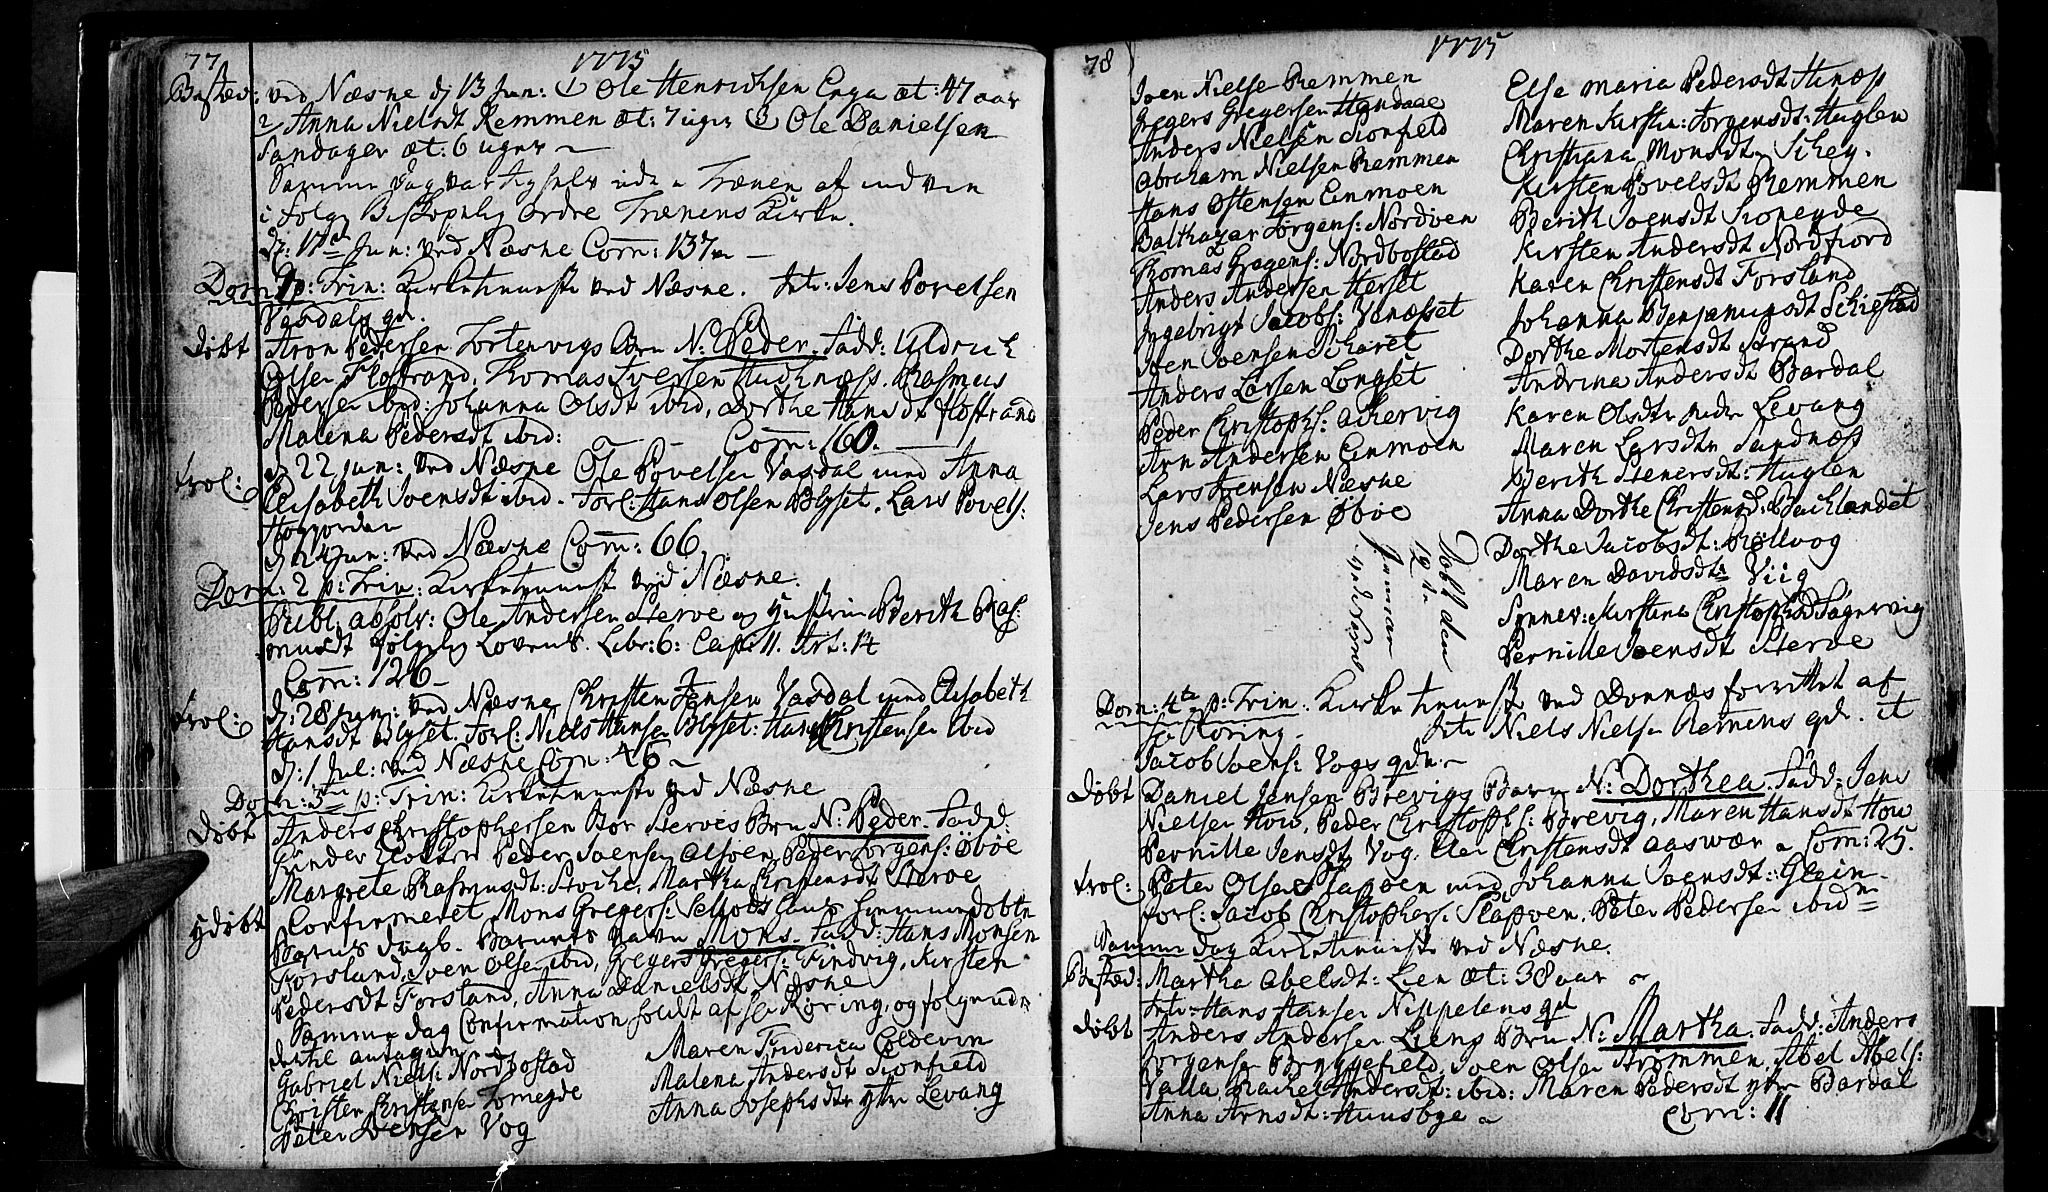 77
1775
Begraved: ved Næsne d: 13 Jun: 1) Ole Henrichsen Enga æt: 47 aar
2/ Anna Nielsdt Remmen æt: 7 uger 3) Ole Danielsen
Sandager æt: 6 uger
Samme Dag var
i følge Biskopelig Ordre Trænens Kirke.
d: 17de Jun: ved Næsne Com: 137
Dom: 1 p: Trin: Kirketienniste ved Næsne. Intr: Jens Povelsen
Vasdals qd.
Døbt Aron Pedersen Tortenvigs Barn N: Peder. Fadd: Uldrich
Olsen Flostrand, Thomas Iversen Hudknæss, Rasmus
Pedersen ibid: Johanna Olsdt ibid, Dorthe Hansdt Flostrand
Malena Pedersdt ibid: Com: 160.
Trol: d 22 Jun: ved Næsne Ole Povelsen Vasdal med Anna
Elisabeth Joensdt ibid. Forl: Hans Olsen Blyset, Lars Povels:
Hogjorden
d 24 Jun: ved Næsne Com: 66.
Dom: 2 p: Trin: Kirketienniste ved Næsne.
Publ: absolv: Ole Andersen Herve og Hustru Berith Ras:
musdt følgelig Lovens Libr: 6: Cap: 11. Art: 14
Com: 126
Trol: d: 28 Jun: ved Næsne Christen Jensen Vasdal med Elisabeth
Hansdt Blyset. Forl: Niels Hansen Blyset: Hans Christensen ibid
d: 1 Jul: ved Næsne Com: 46
Dom: 3tia p: Trin: Kirketienniste ved Næsne
Døbt Anders Christophersen Herves Brn N: Peder. Fadd:
Peder Joensen Alsøen, Peder Jørgens: Øbøe
Margrete Rasmusdt: Stocke, Martha Christensdt Herve
Confirmeret Mons Gregers: hiemmedøbte
hdøbt Barns daab. Barnets navn Mons. Fadd: Hans Monsen
Forsland, Joen Olsen ibid, Gregers Gregers: Findvig, Kirsten
Pedersdt Forsland, Anna Danielsdt Næsne
Samme dag Confirmation holdt af Hr Røring, og følgende
dertil antagen
Gabriel Niels: Nordbostad
Christen Christensen Tomegde
Peter Joensen Vog
Maren Friderica Coldevin
Malena Andersdt Konfield
Anna Josephsdtr ytre Levang
78
1775
Joen Nielse Remmen
Gregers Gregersen Handaae
Anders Nielsen Konfield
Abraham Nielsen Remmen
Hans Østensen Einmoen
Balthazar Jørgens: Nordven
Thomas Gregers: Nordbostad
Anders Andersen Herset
Ingebrigt Jacobs: Venæsset
Iven Joensen Skaret
Anders Larsen Longset
Peder Christophs: Ackervig
Arn Andersen Einmoen
Lars Jensen Næsne
Jens Pedersen Øbøe
Døbt den
12te
Januar
ved Næsne
Else Maria Pedersdt Hinæss
Maren Kirstin: Jørgensdt: Huglen
Christiana Monsdtr Schey.
Kirsten Povelsdt Remmen
Berith Joensdt Konegde
Kirsten Andersdt Nordfiord
Karen Christensdt Forsland
Johanna Benjaminsdt Schiestad
Dorthe Mortensdt Strand
Andrina Andersdt Bardal
Karen Olsdtr nedre Levang
Maren Larsdtr Sandnæss
Berith Stenersdt: Huglen
Anna Dorthe Christensd: Bachlandet
Dorthe Jacobsdt: Røllvog
Maren Davidsdtr Viig
Synnev: Kirstina Christophsdt Sagervig
Pernille Joensdt Herve
Dom: 4te p: Trin: Kirketienniste ved Dønnæs forrettet af
Hr Røring. Intr: Niels Nielsen Remens qd. et
Jacob Joens: Vogs qd.
Døbt Daniel Jensen Brevigs Barn N: Dorthea. Fadd: Jens
Nielsen How, Peder Christophs: Brevig, Maren Hansdt How
Pernille Jensdt Vog, Elen Christensdt Aaswær Com: 25.
Trol: Peter Olsen Slapøen med Johanna Joensdt: Glein
Forl: Jacob Christophers: Slapøen, Peter Pedersen ibidm
Samme dag Kirketienniste ved Næsne.
Begraved: Martha Abelsdt: Lien æt: 38 aar
Intr: Hans Hansen Nippelens qd
Døbt Anders Andersen Liens Brn N: Martha. Fadd: Anders
Jørgensen Bryggefield, Joen Olsen Strømmen, Abel Abels:
Valla, Rachel Andersdt: ibid: Maren Pedersdt ytre Bardal
Anna Arnsdt: Huusbye Com: 11